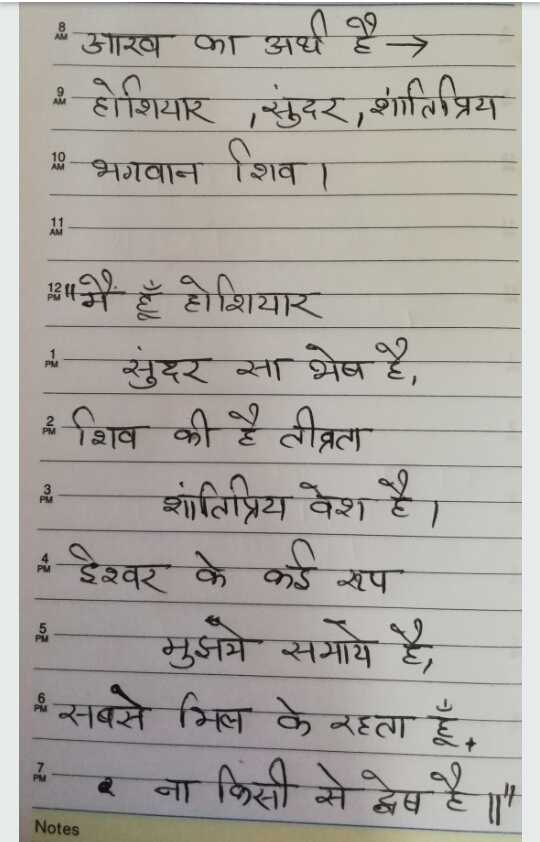 8 AM आरव का अर्थ है →
9 AM होशियार , सुंदर , शांतिप्रिय
10 AM भगवान शिव ।
11 AM
12 PM "मैं हूँ होशियार
1 PM सुंदर सा भेष है,
2 PM शिव की है तीव्रता
3 PM शांतिप्रिय वेश है ।
4 PM ईश्वर के कई रूप
5 PM मुझमे समाये है,
6 PM सबसे मिल के रहता हूँ,
7 PM ना किसी से द्वेष है ॥"
Notes